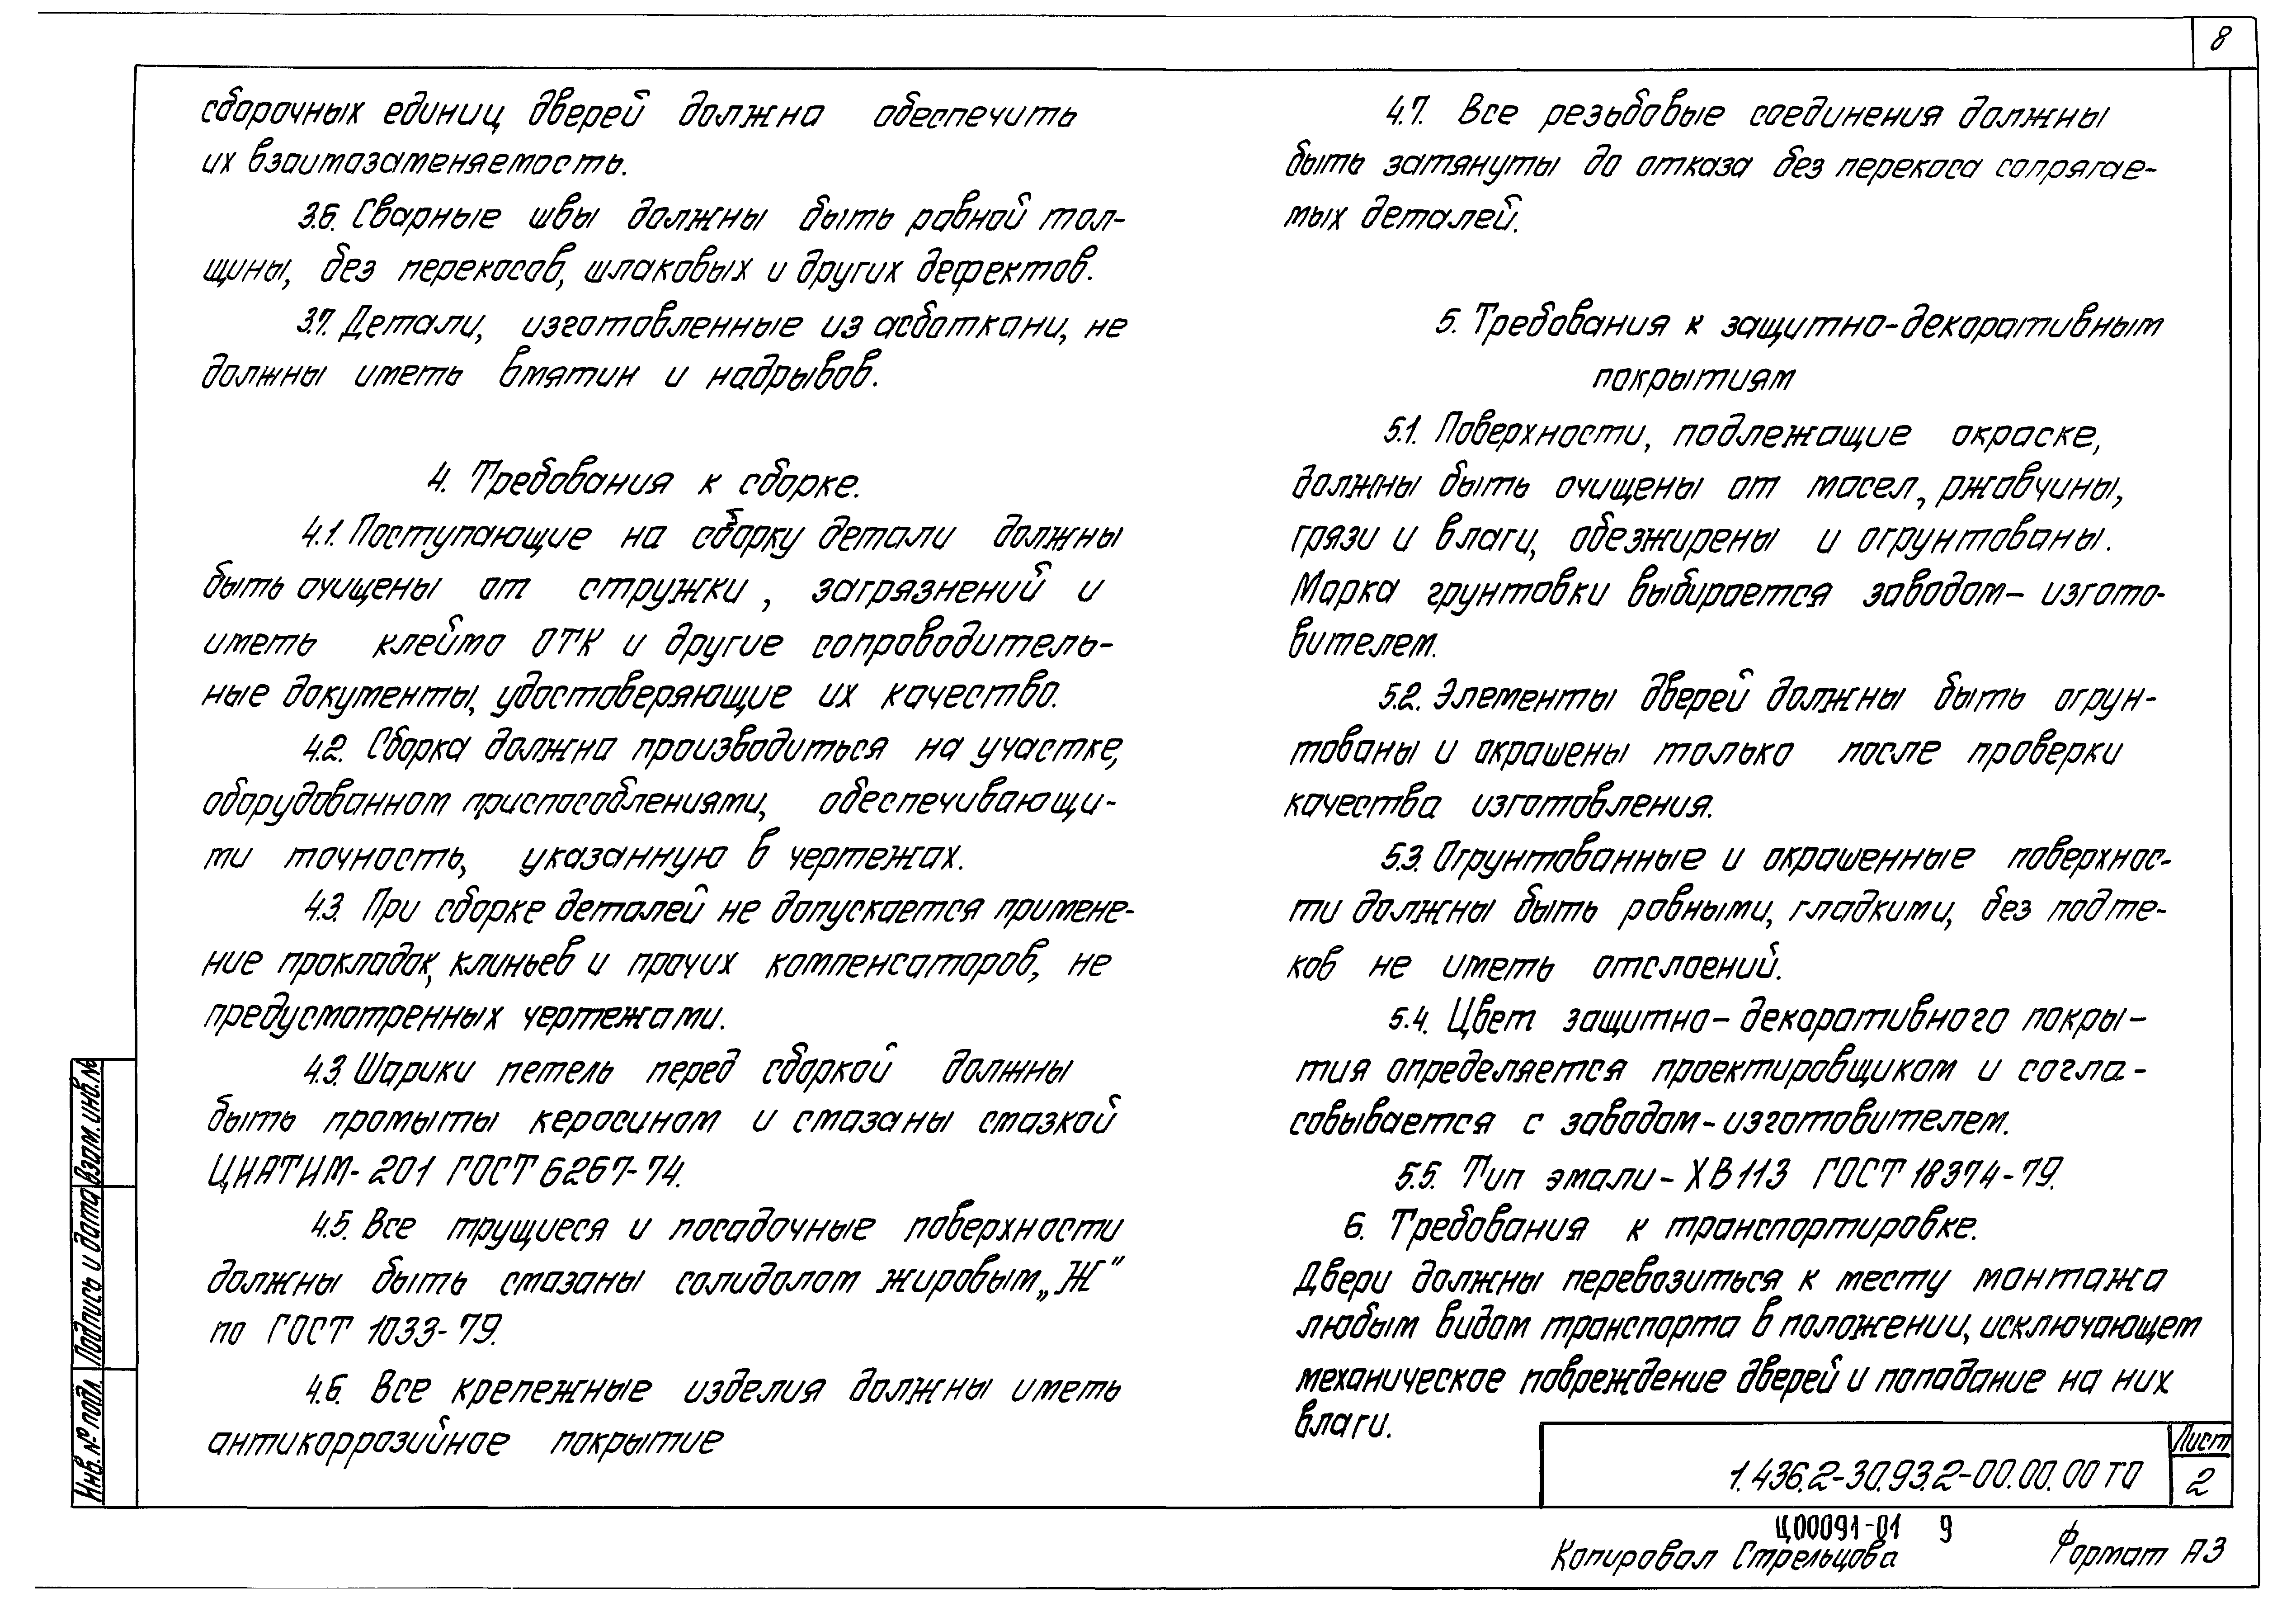 8
сборочных единиц дверей должна обеспечить
их взаимозаменяемость.
3.6. Сварные швы должны быть равной тол-
щины, без перекосов, шлаковых и других дефектов.
3.7. Детали, изготовленные из асботкани, не
должны иметь вмятин и надрывов.
4. Требования к сборке.
4.1. Поступающие на сборку детали должны
быть очищены от стружки, загрязнений и
иметь клеймо ОТК и другие сопроводитель-
ные документы, удостоверяющие их качество.
4.2. Сборка должна производиться на участке,
оборудованном приспособлениями, обеспечивающи-
ми точность, указанную в чертежах.
4.3. При сборке деталей не допускается примене-
ние прокладок, клиньев и прочих компенсаторов, не
предусмотренных чертежами.
4.3. Шарики петель перед сборкой должны
быть промыты керосином и смазаны смазкой
ЦИАТИМ-201 ГОСТ 6267-74.
4.5. Все трущиеся и посадочные поверхности
должны быть смазаны солидолом жировым „Ж"
по ГОСТ 1033-79.
4.6. Все крепежные изделия должны иметь
антикоррозийное покрытие
4.7. Все резьбовые соединения должны
быть затянуты до отказа без перекоса сопрягае-
мых деталей.
5. Требования к защитно-декоративным
покрытиям
5.1. Поверхности, подлежащие окраске,
должны быть очищены от масел, ржавчины,
грязи и влаги, обезжирены и огрунтованы.
Марка грунтовки выбирается заводом-изгото-
вителем.
5.2. Элементы дверей должны быть огрун-
тованы и окрашены только после проверки
качества изготовления.
5.3. Огрунтованные и окрашенные поверхнос-
ти должны быть равными, гладкими, без подте-
ков не иметь отслоений.
5.4. Цвет защитно-декоративного покры-
тия определяется проектировщиком и согла-
совывается с заводом-изготовителем.
5.5. Тип эмали-ХВ113 ГОСТ 18374-79.
6. Требования к транспортировке.
Двери должны перевозиться к месту монтажа
любым видом транспорта в положении, исключающем
механическое повреждение дверей и попадание на них
влаги.
Инв. № подл. Подпись и дата Взам. инв. №
1.436.2-30.93.2-00.00.00 ТО
Лист
2
Ц00091-01 9
Копировал Стрельцова Формат А3